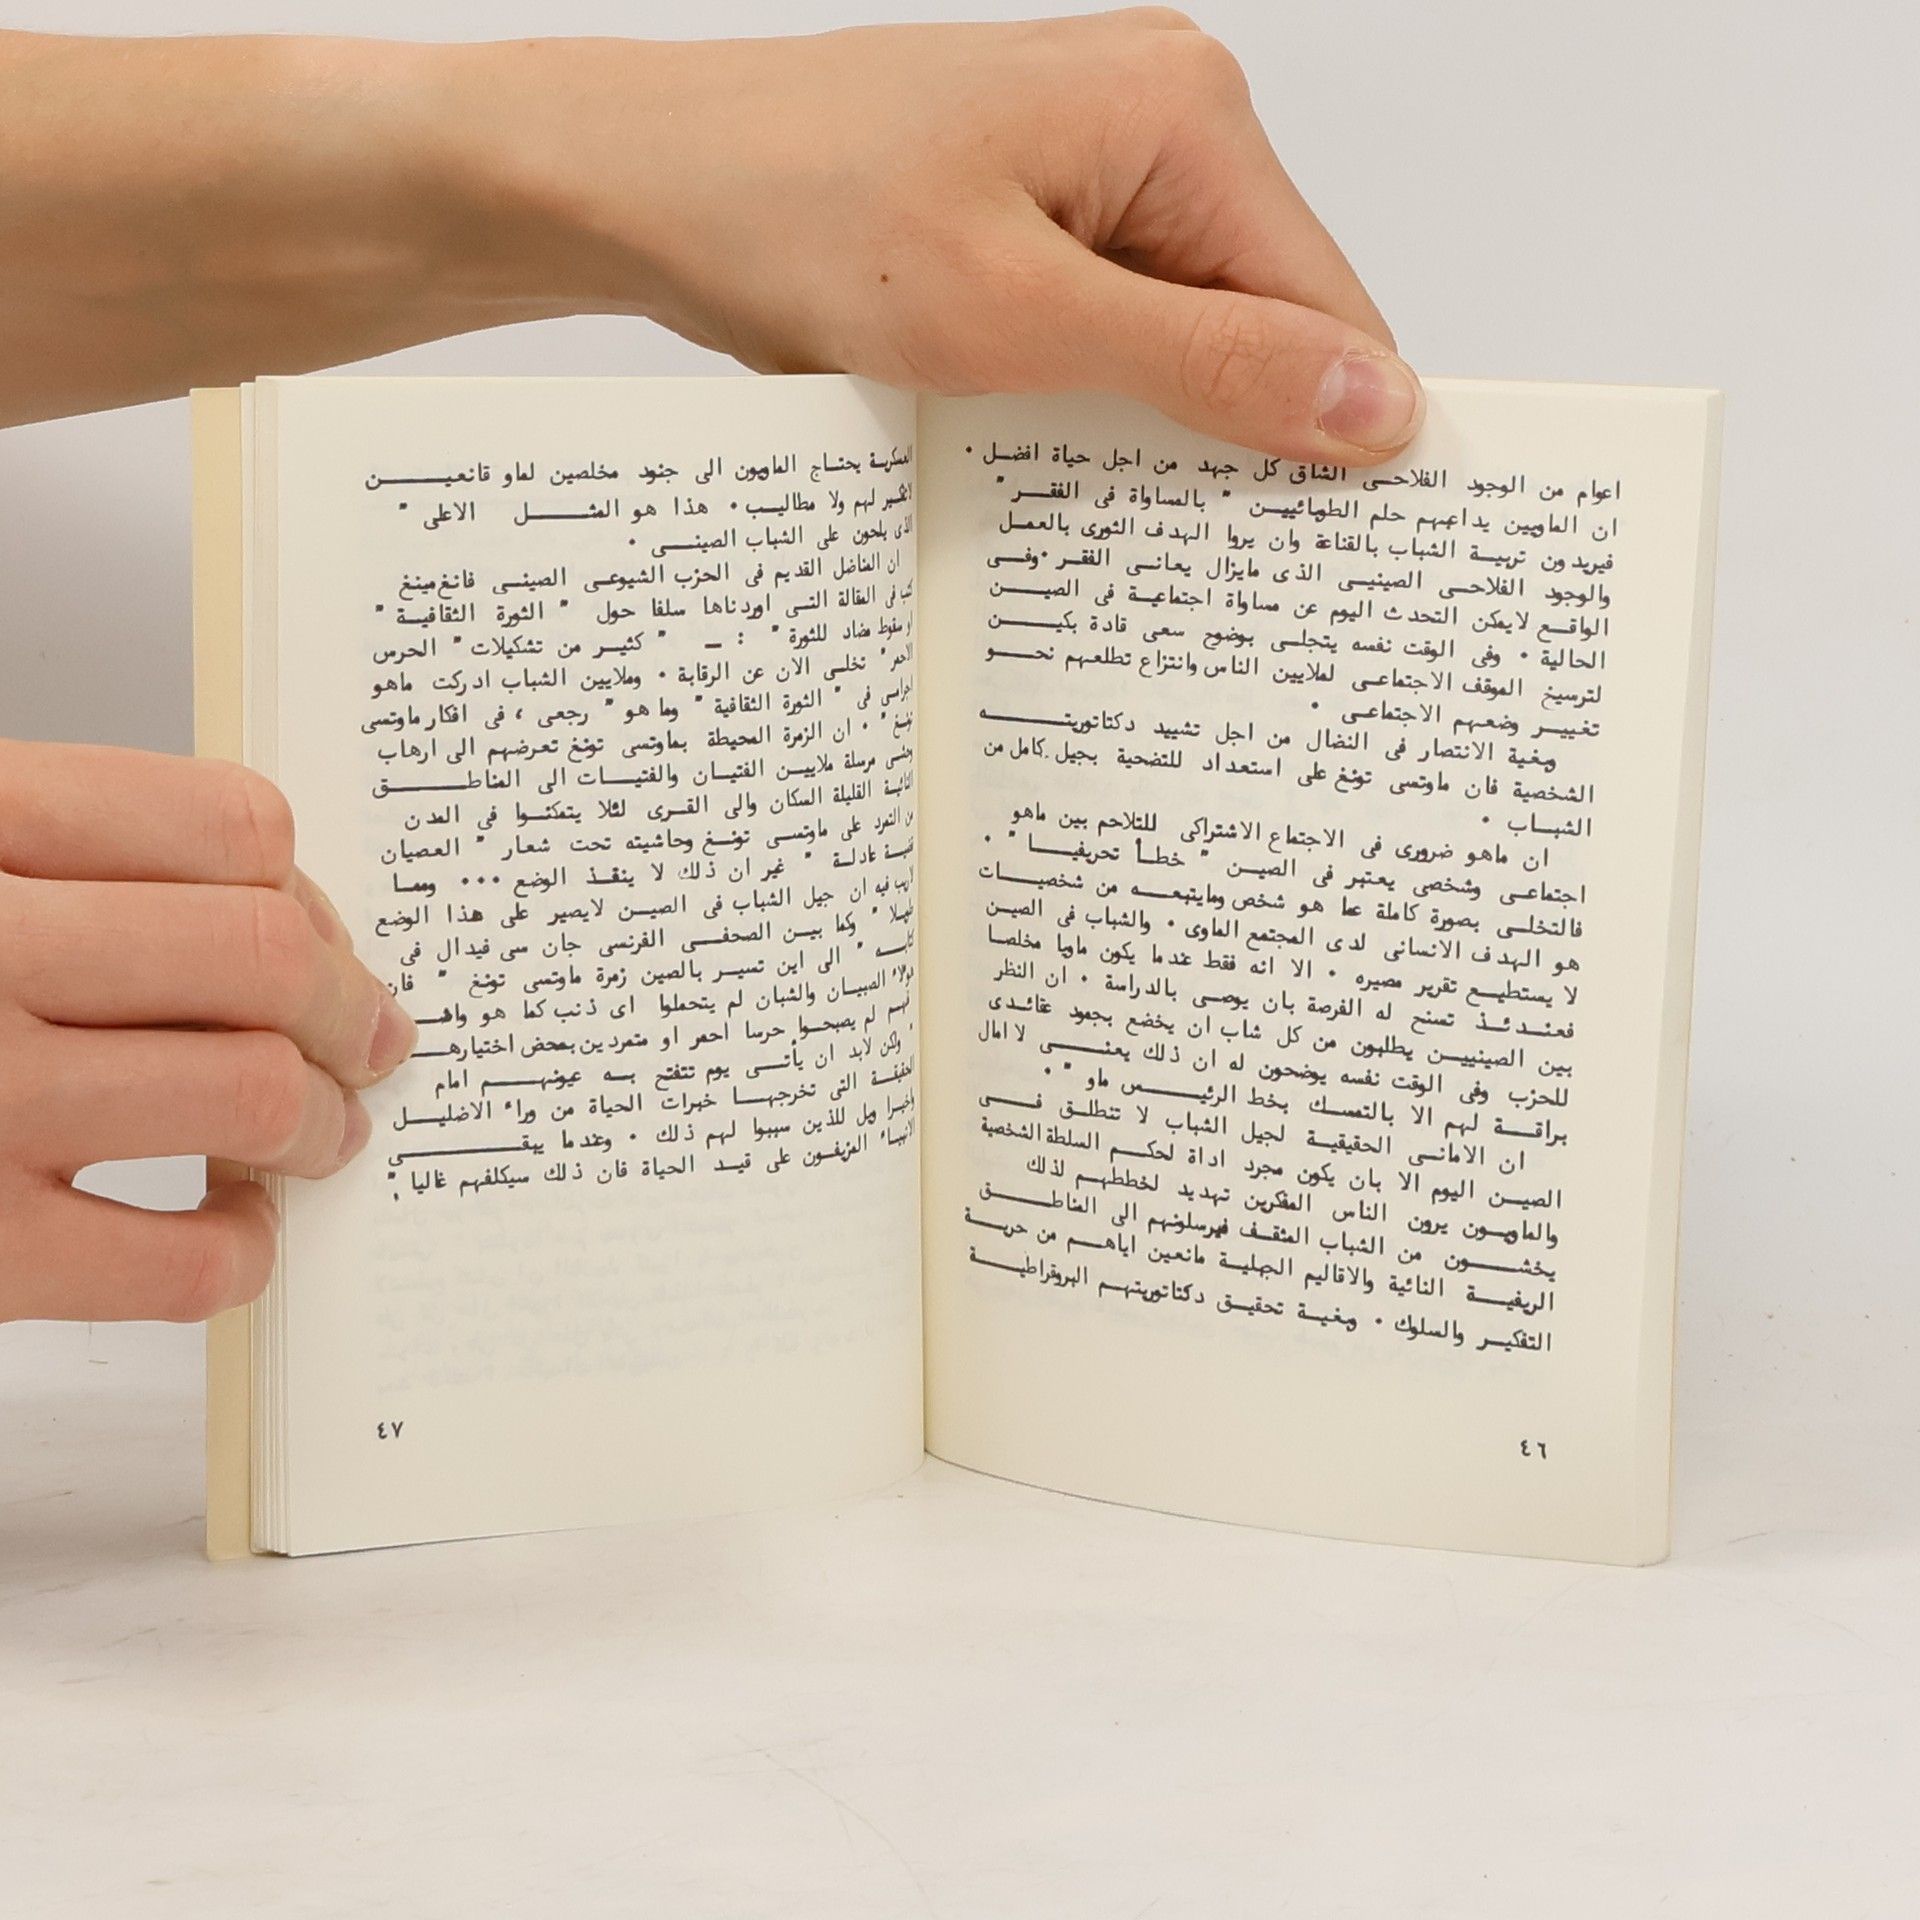 اعوام من الوجود الفلاحى الشاق كل جهد من اجل حياة افضل .
ان الماويين يداعبهم حلم الطوبائيين " بالمساواة فى الفقر "
فيريدون تربية الشباب بالقناعة وان يروا الهدف الثورى بالعمل
والوجود الفلاحى الصينى الذى مايزال يعانى الفقر . وفى
الواقع لايمكن التحدث اليوم عن مساواة اجتماعية فى الصين
الحالية . وفى الوقت نفسه يتجلى بوضوح سعى قادة بكين
لترسيخ الموقف الاجتماعى لملايين الناس وانتزاع تطلعهم نحو
تغيير وضعهم الاجتماعى .
وبغية الانتصار فى النضال من اجل تشييد دكتاتوريته
الشخصية فان ماوتسى تونغ على استعداد للتضحية بجيل كامل من
الشباب .
ان ماهو ضرورى فى الاجتماع الاشتراكى للتلاحم بين ماهو
اجتماعى وشخصى يعتبر فى الصين " خطأ تحريفيا " .
فالتخلى بصورة كاملة عما هو شخص ومايتبعه من شخصيات
هو الهدف الانسانى لدى المجتمع الماوى . والشباب فى الصين
لا يستطيع تقرير مصيره . الا انه فقط عندما يكون ماويا مخلصا
فعندئذ تسنح له الفرصة بان يوصى بالدراسة . ان النظر
بين الصينيين يطلبون من كل شاب ان يخضع بجمود عقائدى
للحزب وفى الوقت نفسه يوضحون له ان ذلك يعنى لا امال
براقة لهم الا بالتمسك بخط الرئيس ماو " .
ان الامانى الحقيقية لجيل الشباب لا تنطلق فى
الصين اليوم الا بان يكون مجرد اداة لحكم السلطة الشخصية
والماويون يرون الناس المفكرين تهديد لخططهم لذلك
يخشون من الشباب المثقف فيرسلونهم الى المناطق
الريفية النائية والاقاليم الجبلية مانعين اياهم من حرية
التفكير والسلوك . وبغية تحقيق دكتاتوريتهم البروقراطية
٤٦
العسكرية يحتاج الماويون الى جنود مخلصين لماو قانعين
لهم ولا مطاليب . هذا هو المثل الاعلى "
الذى يلحون على الشباب الصينى .
ان المناضل القديم فى الحزب الشيوعى الصينى فانغ مينغ
كتب فى المقالة التى اوردناها سلفا حول " الثورة الثقافية "
او سقوط مضاد للثورة " : _ " كثير من تشكيلات " الحرس
الاحمر " تخلى الان عن الرقابة . وملايين الشباب ادركت ماهو
اجرامى فى " الثورة الثقافية " وما هو " رجعى ، فى افكار ماوتسى
تونغ " . ان الزمرة المحيطة بماوتسى تونغ تعرضهم الى ارهاب
وحشى مرسلة ملايين الفتيان والفتيات الى المناطق
النائية القليلة السكان والى القرى لئلا يتمكنوا فى المدن
من التمرد على ماوتسى تونغ وحاشيته تحت شعار " العصيان
قضية عادلة " غير ان ذلك لا ينقذ الوضع ... ومما
لاريب فيه ان جيل الشباب فى الصين لايصبر على هذا الوضع
طويلا " وكما بين الصحفى الفرنسى جان سى فيدال فى
كتابه " الى اين تسير بالصين زمرة ماوتسى تونغ " فان
هؤلاء الصبيان والشبان لم يتحملوا اى ذنب كما هو
فهم لم يصبحوا حرسا احمر او متمردين بمحض
ولكن لابد ان يأتى يوم تتفتح به عيونهم امام
الحقيقة التى تخرجها خبرات الحياة من وراء الاضليل
واخيرا ويل للذين سببوا لهم ذلك . وعندما يبقى
الانبياء المزيفون على قيد الحياة فان ذلك سيكلفهم غاليا " .
٤٧